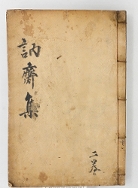 訥齋集
二卷